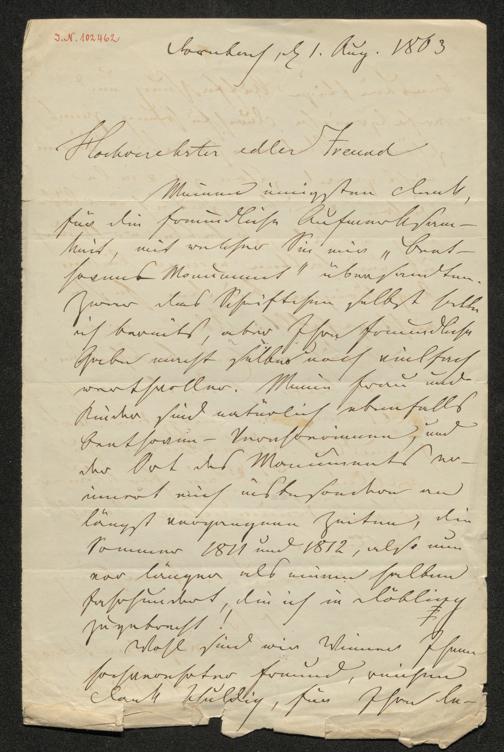 I.N. 102462
Dornbach, d 1. Aug. 1863
Hochverehrter edler Freund
Meinen innigsten Dank,
für die freundliche Aufmerksam-
keit, mit welcher Sie mir „Beet-
hovens Monument" übersandten.
Zwar das Schriftchen selbst hatte
ich bereits, aber Ihre freundliche
Gabe macht selbes noch vielfach
werthvoller. Meine Frau und
Kinder sind natürlich ebenfalls
Beethoven-Verehrerinnen, und
der Ort des Monuments er-
innert mich insbesondere an
längst vergangene Zeiten, die
Sommer 1811 und 1812, also nun
vor länger als einem halben
Jahrhundert, die ich in Döbling
zugebracht!
Wohl sind wir Wiener Ihnen
hochverehrter Freund, reichen
Dank schuldig, für Ihre Be-